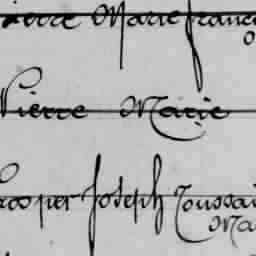 Pierre Marie Franc
Pierre Marie
Prosper Joseph Toussai
Ma